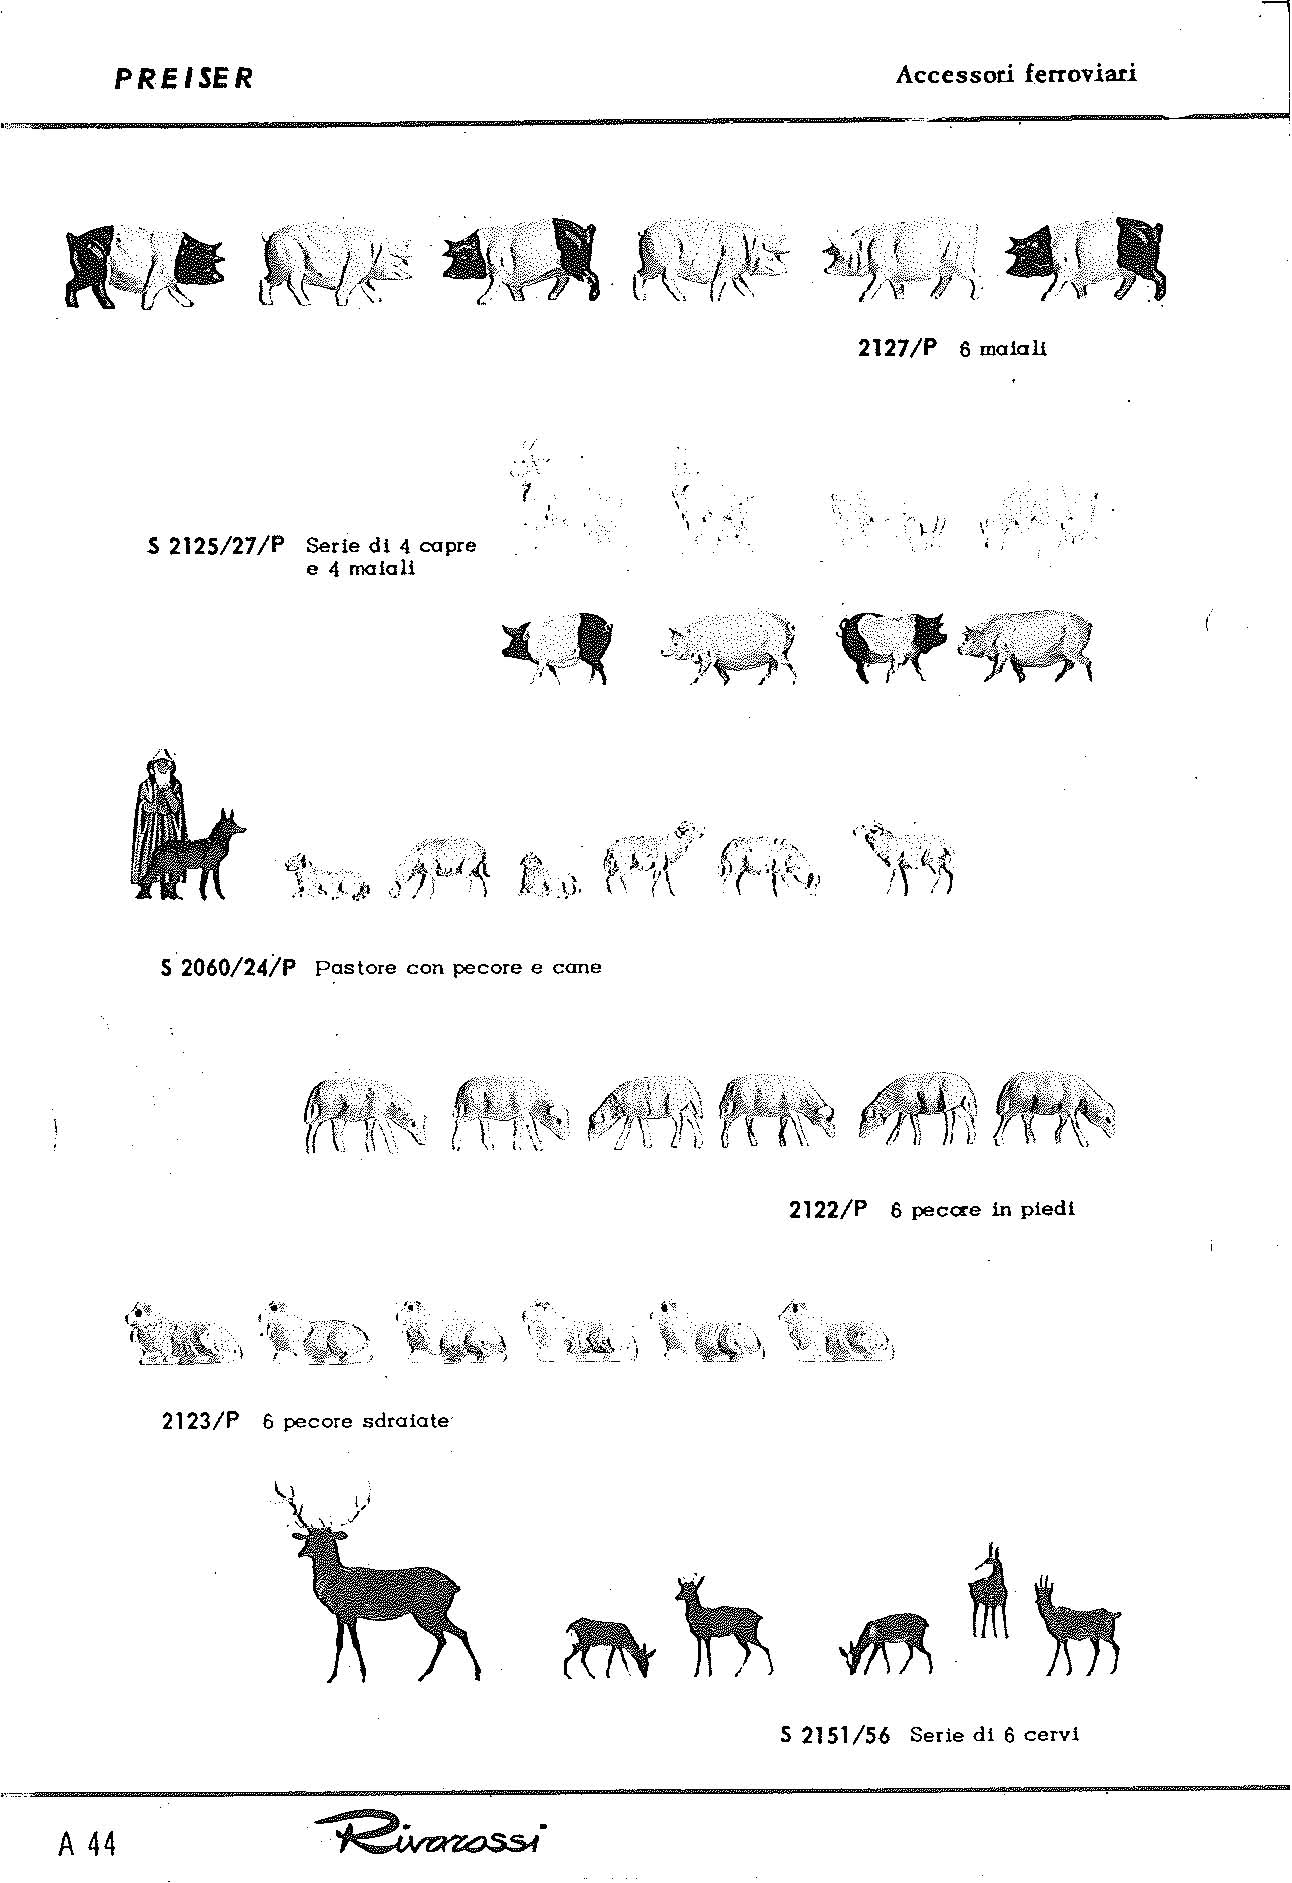 PREISER
Accessori ferroviari
2127/P 6 maiali
S 2125/27/P Serie di 4 capre
e 4 maiali
S 2060/24/P Pastore con pecore e cane
2122/P 6 pecore in piedi
2123/P 6 pecore sdraiate
S 2151/56 Serie di 6 cervi
A 44
Rivarossi